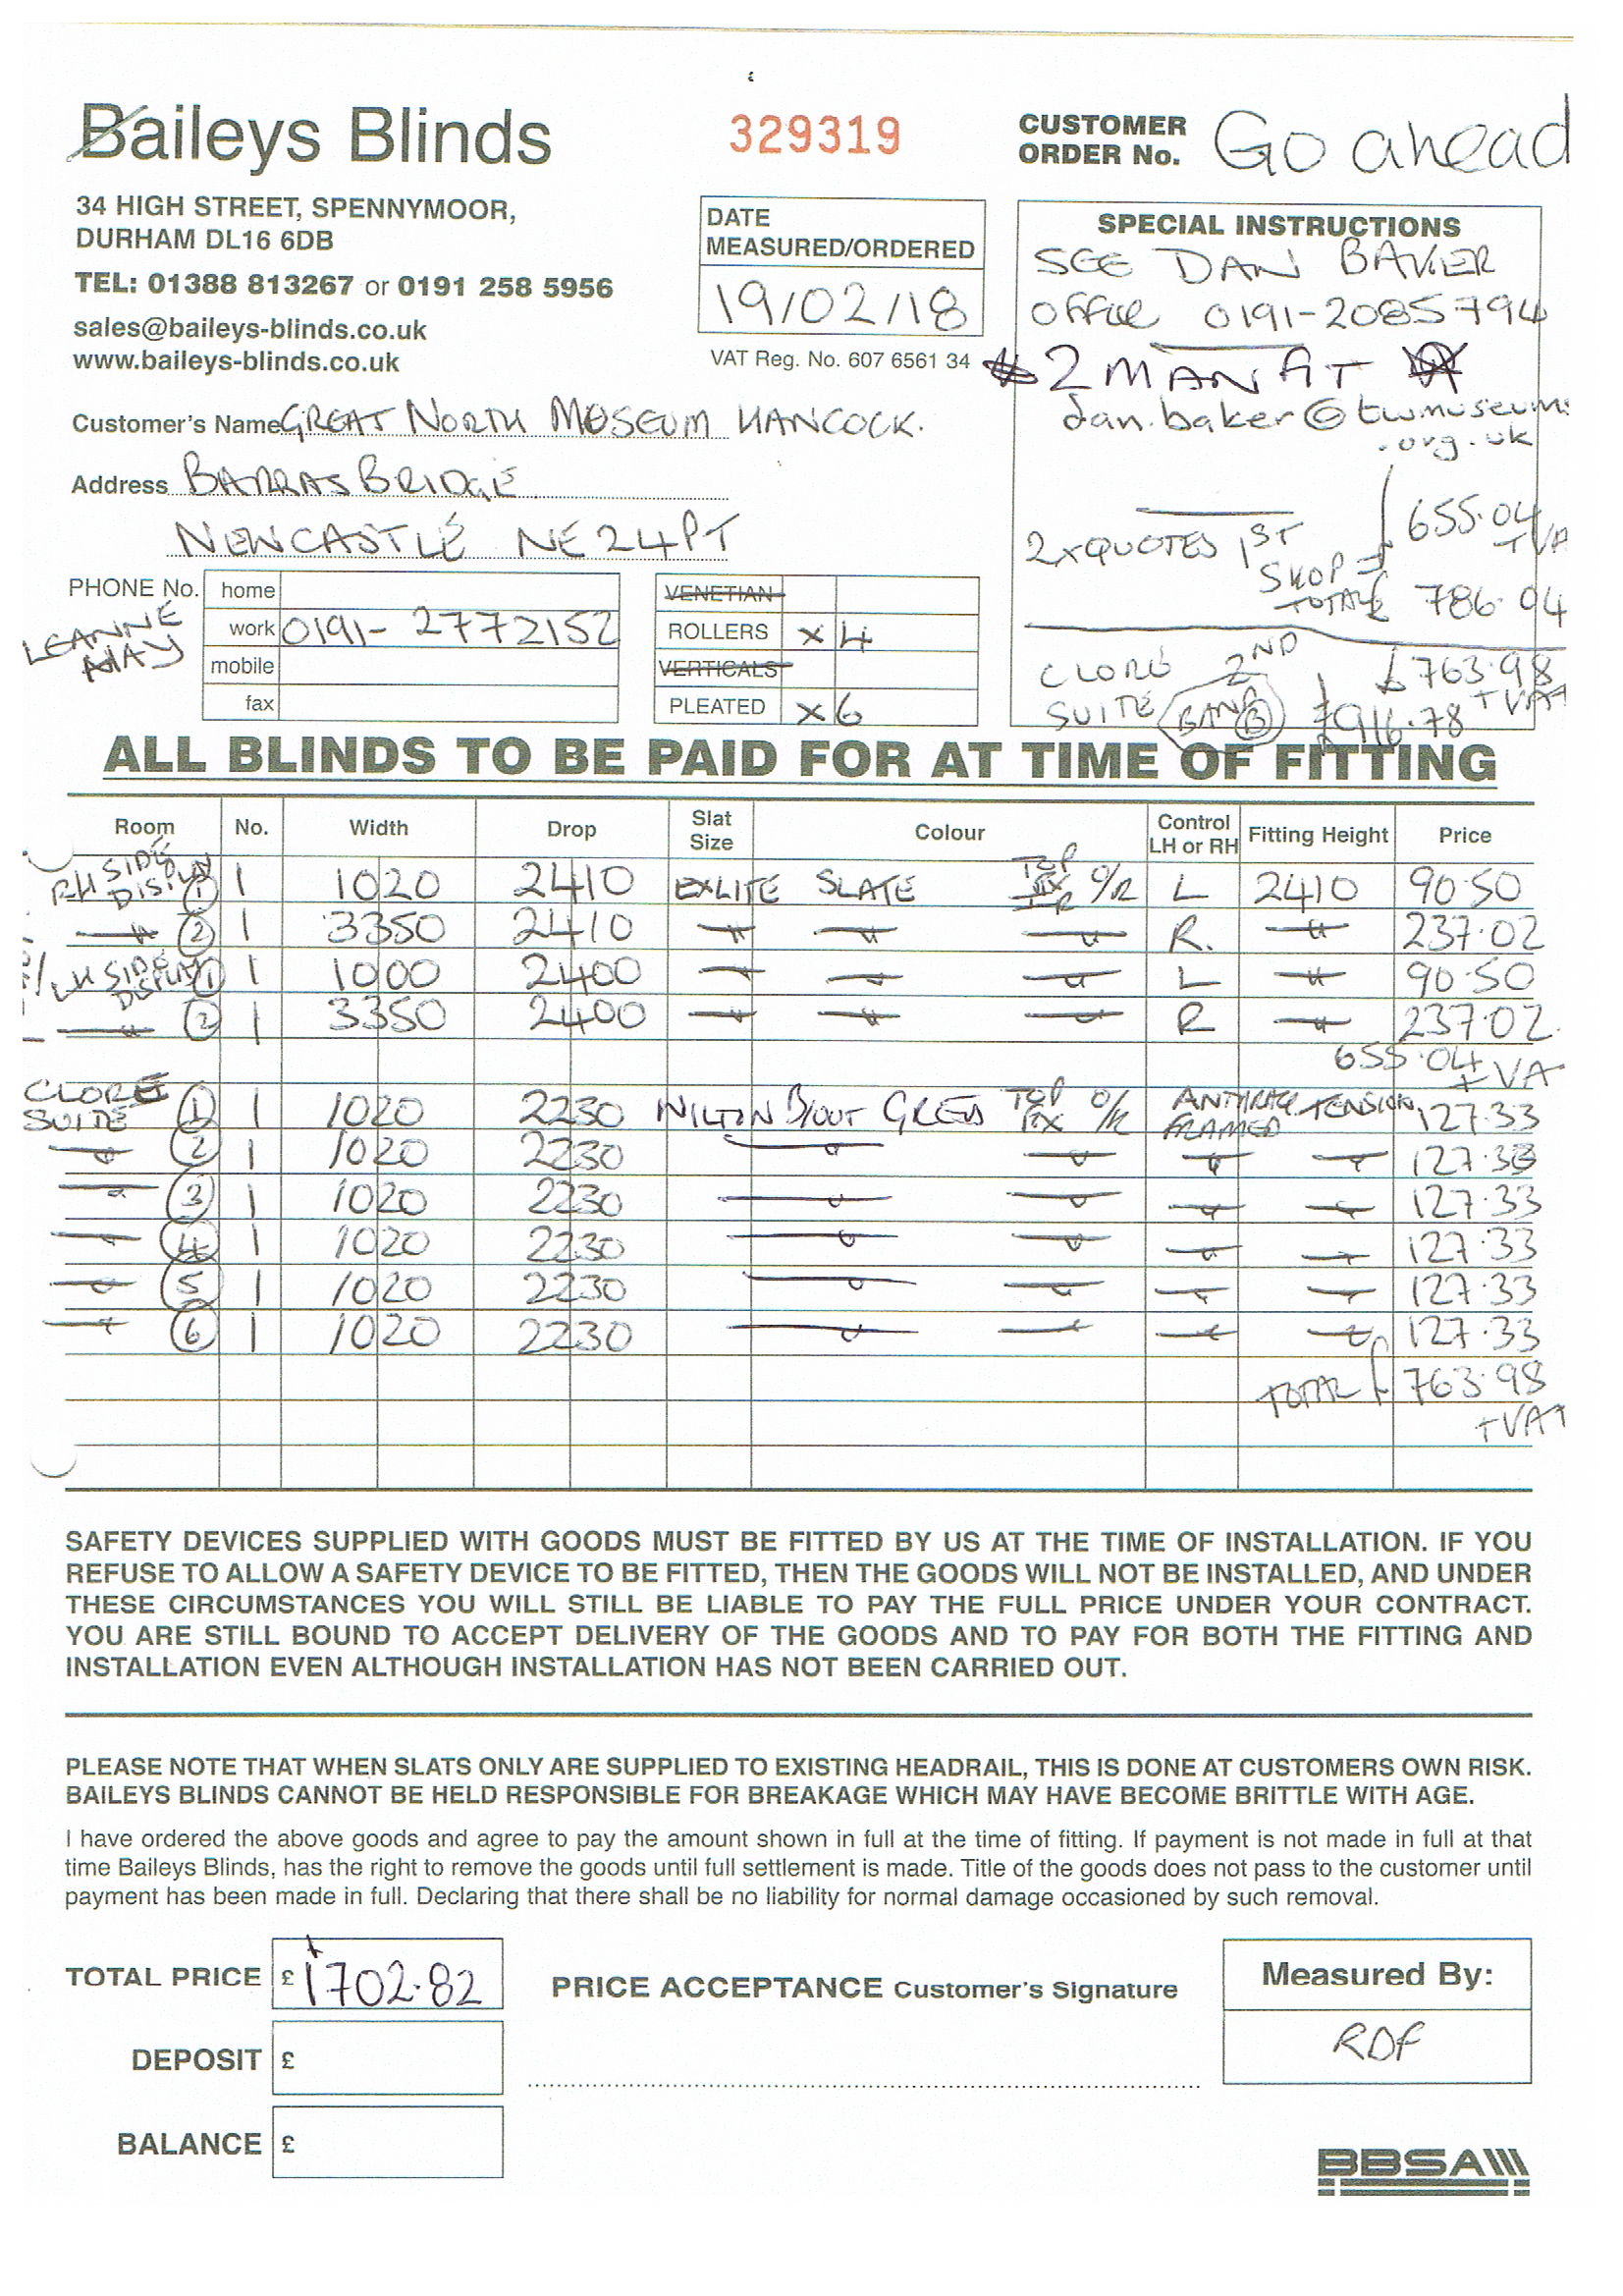 Baileys Blinds
34 HIGH STREET, SPENNYMOOR,
DURHAM DL16 6DB
TEL: 01388 813267 or 0191 258 5956
sales@baileys-blinds.co.uk
www.baileys-blinds.co.uk
329319
DATE
MEASURED/ORDERED
19/02/18
VAT Reg. No. 607 6561 34
CUSTOMER
ORDER No. Go ahead
SPECIAL INSTRUCTIONS
SEE DAN BAKER
OFFICE 0191-2085794
2 MAN FIT
dan.baker@twmuseums
.org.uk
2xQUOTES 1ST
SHOP = £655.04
+VA
TOTAL £ 786.04
CLORE 2ND £763.98
SUITE BAND B +VAT
£916.78
Customer's Name GREAT NORTH MUSEUM HANCOCK.
Address BARRAS BRIDGE
NEWCASTLE NE2 4PT
PHONE No.
LEANNE
home
work 0191-2772152
mobile
fax
VENETIAN
ROLLERS x4
VERTICALS
PLEATED x6
ALL BLINDS TO BE PAID FOR AT TIME OF FITTING
Room No. Width Drop Slat Size Colour Control LH or RH Fitting Height Price
RH SIDE DISPLAY 1 1 1020 2410 EXLITE SLATE TOP FIX O/R L 2410 90.50
" 2 1 3350 2410 " " " R. " 237.02
LH SIDE DISPLAY 1 1 1000 2400 " " " L " 90.50
" 2 1 3350 2400 " " " R " 237.02
655.04
+VA
CLORE SUITE 1 1 1020 2230 WILTON B/OUT GREYS TOP FIX O/R TENSION FRAMED 127.33
" 2 1 1020 2230 " " " " 127.33
" 3 1 1020 2230 " " " " 127.33
" 4 1 1020 2230 " " " " 127.33
" 5 1 1020 2230 " " " " 127.33
" 6 1 1020 2230 " " " " 127.33
TOTAL £763.98
+VAT
SAFETY DEVICES SUPPLIED WITH GOODS MUST BE FITTED BY US AT THE TIME OF INSTALLATION. IF YOU
REFUSE TO ALLOW A SAFETY DEVICE TO BE FITTED, THEN THE GOODS WILL NOT BE INSTALLED, AND UNDER
THESE CIRCUMSTANCES YOU WILL STILL BE LIABLE TO PAY THE FULL PRICE UNDER YOUR CONTRACT.
YOU ARE STILL BOUND TO ACCEPT DELIVERY OF THE GOODS AND TO PAY FOR BOTH THE FITTING AND
INSTALLATION EVEN ALTHOUGH INSTALLATION HAS NOT BEEN CARRIED OUT.
PLEASE NOTE THAT WHEN SLATS ONLY ARE SUPPLIED TO EXISTING HEADRAIL, THIS IS DONE AT CUSTOMERS OWN RISK.
BAILEYS BLINDS CANNOT BE HELD RESPONSIBLE FOR BREAKAGE WHICH MAY HAVE BECOME BRITTLE WITH AGE.
I have ordered the above goods and agree to pay the amount shown in full at the time of fitting. If payment is not made in full at that
time Baileys Blinds, has the right to remove the goods until full settlement is made. Title of the goods does not pass to the customer until
payment has been made in full. Declaring that there shall be no liability for normal damage occasioned by such removal.
TOTAL PRICE £ 1702.82
DEPOSIT £
BALANCE £
PRICE ACCEPTANCE Customer's Signature
Measured By:
RDF
BBSA